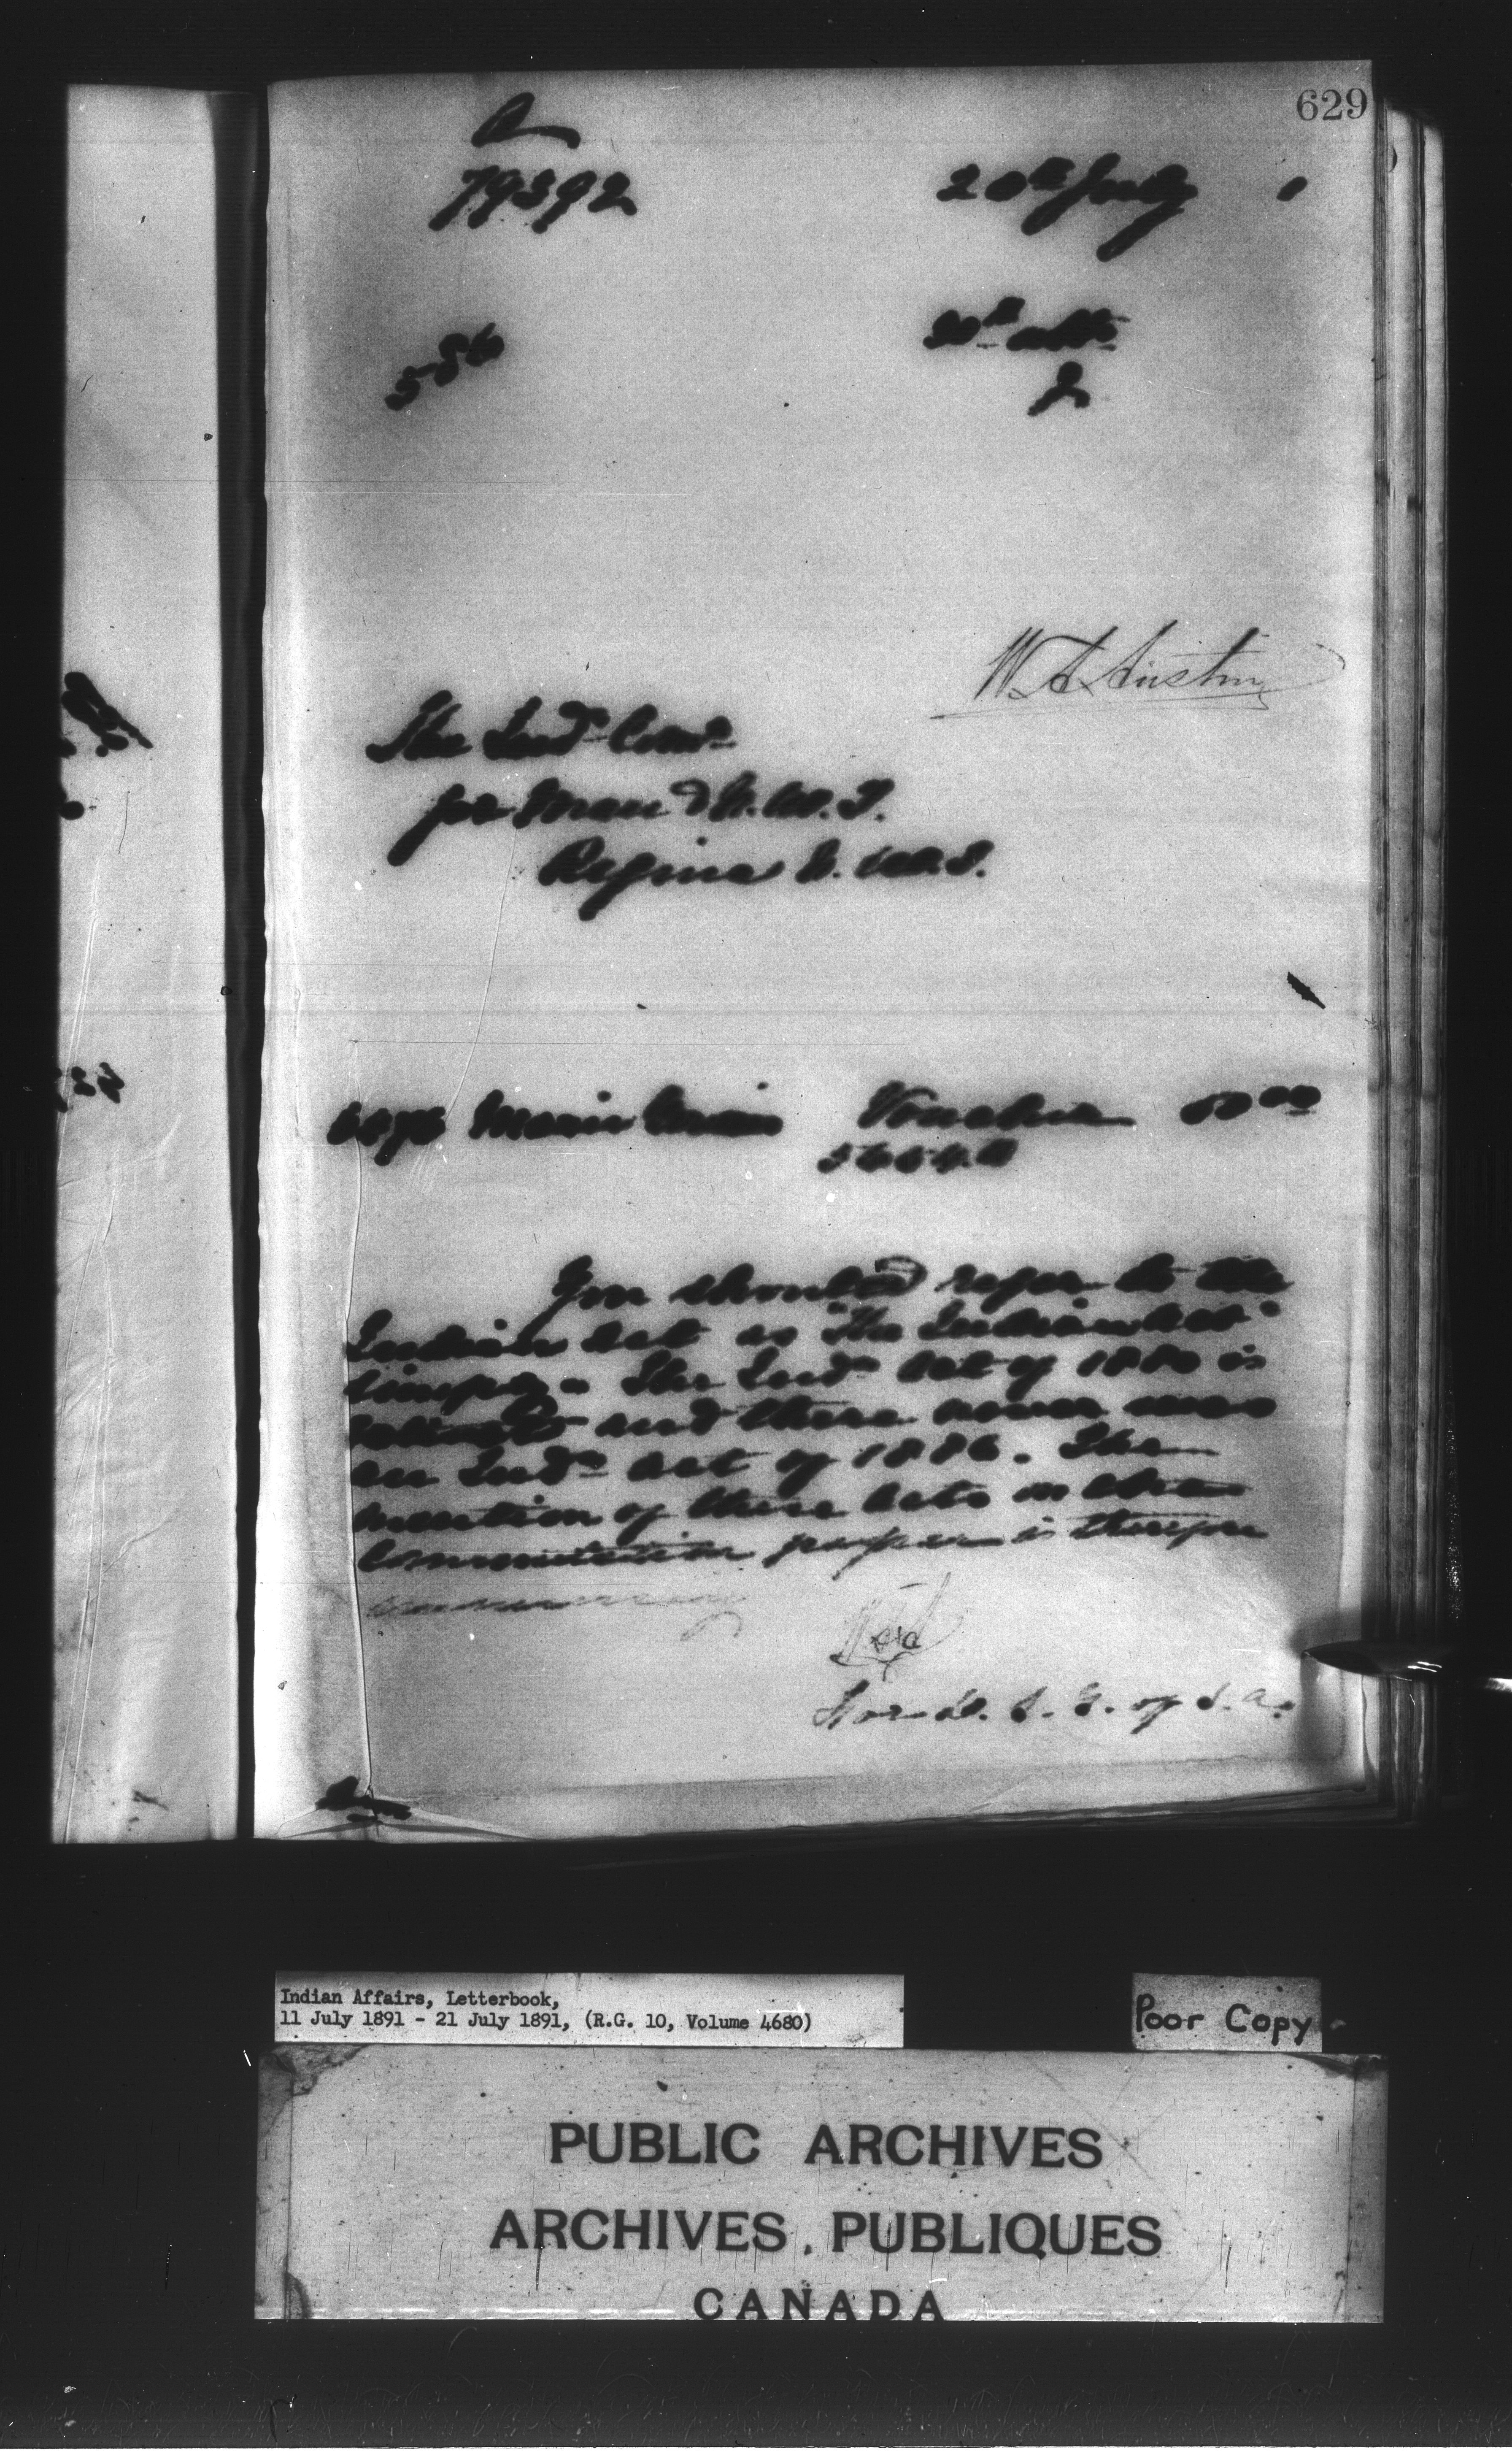 629
A
79392
20th July 1
586
30th ulto
J
W. A. Austin
The Indn Comr
for Man & N.W.T.
Regina N.W.T.
Marie Voucher 50 00
You should refer to the
Indian Act as "The Indian Act"
simply. The Indn Act of 1880 is
and there never was
an Indn Act of 1886. The
mention of these Acts in the
Commutation paper is therefore
unnecessary
For D. S. G. of I. A.
Indian Affairs, Letterbook,
11 July 1891 - 21 July 1891, (R.G. 10, Volume 4680)
Poor Copy
PUBLIC ARCHIVES
ARCHIVES PUBLIQUES
CANADA